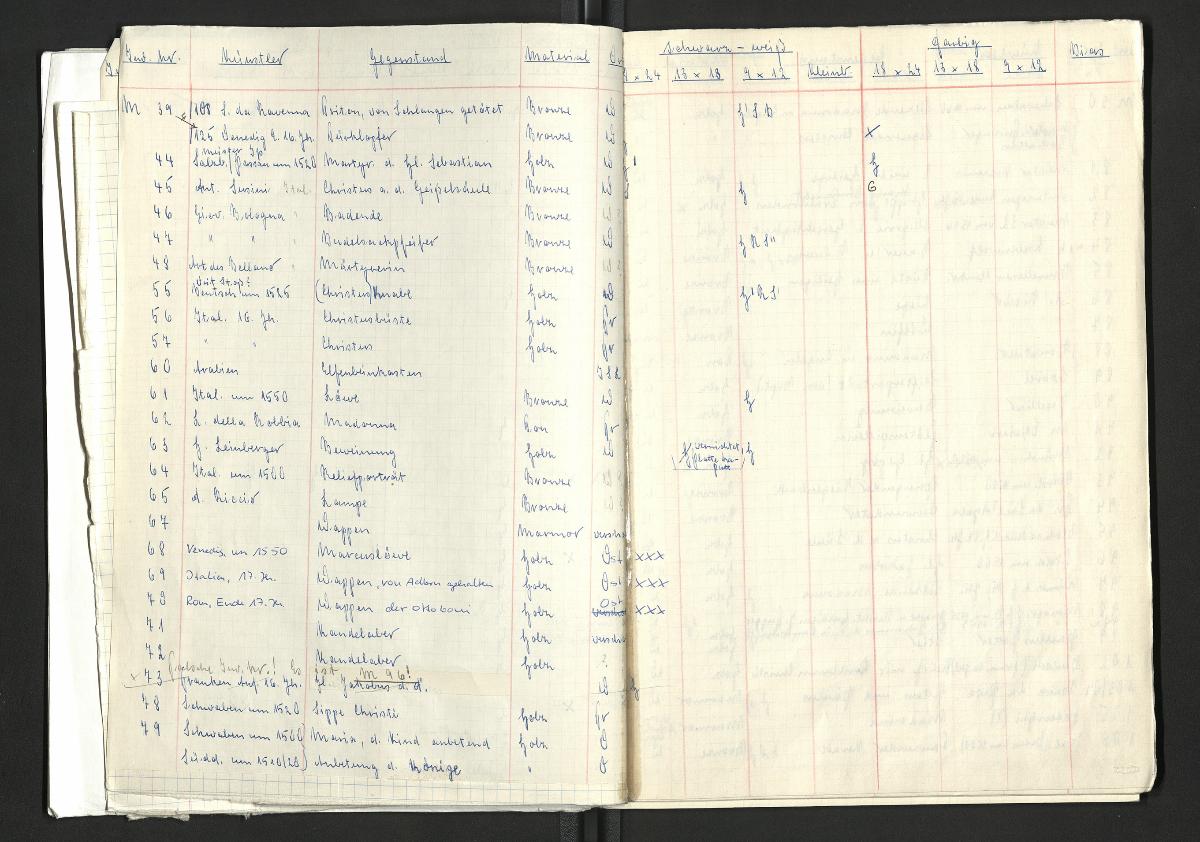 Inv. Nr. Künstler Gegenstand Material schwarz-weiß farbig Dias
x 24 13 x 18 9 x 12 Kleinb. 18 x 24 13 x 18 9 x 12
M 39 /100 S. da Ravenna Triton, von Schlangen getötet Bronze W
125 Venedig 2. 16. Jh. Türklopfer Bronze W x
Meister IP
44 Salzb./Passau um 1520 Martyr. d. hl. Sebastian Holz W
45 Ant. Susini Ital. Christus a. d. Geißelsäule Bronze W G
46 Giov. Bologna " Badende Bronze W
47 " " Dudelsackpfeifer Bronze W
48 Art des Bellano " Märtyrerin Bronze W
55 Deutsch um 1525 (Christus) Knabe Holz W
56 Ital. 16. Jh. Christusbüste Holz Gr
57 " " Christus Holz Gr
60 Arabien Elfenbeinkasten
61 Ital. um 1550 Löwe Bronze W
62 L. della Robbia Madonna Ton Gr
63 H. Leinberger Beweinung Holz W vernichtet Platte kaputt
64 Ital. um 1500 Reliefporträt Bronze W
65 A. Riccio Lampe Bronze W
67 Wappen Marmor versch
68 Venedig, um 1550 Marcuslöwe Holz x Ost xxx
69 Italien, 17. Jh. Wappen, von Adlern gehalten Holz Ost xxx
70 Rom, Ende 17. Jh. Wappen der Ottoboni Holz Ost xxx
71 Kandelaber Holz versch
72 Kandelaber Holz ?
falsche Inv. Nr.! Es ist M 96!
x 73 Franken Anf. 16. Jh. Hl. Jakobus d. Ä. W
78 Schwaben um 1520 Sippe Christi Holz Gr
79 Schwaben um 1500 Maria, d. Kind anbetend Holz O
Südd. um 1510/20 Anbetung d. Könige " O